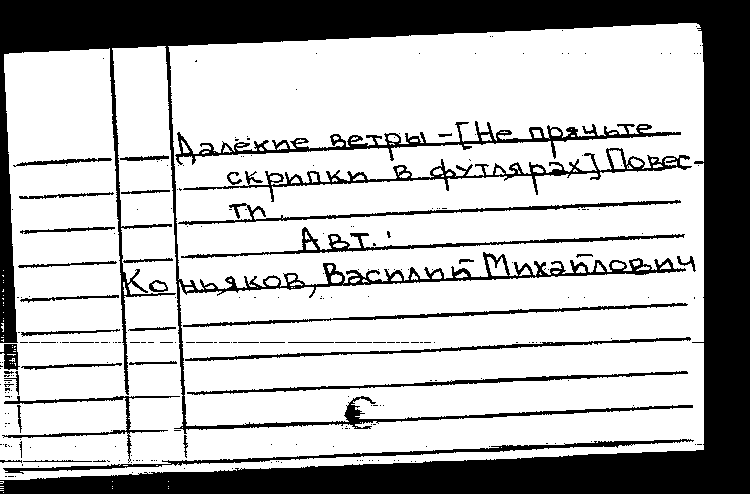 Далёкие ветры -[Не прячьте
скрипки в футлярах] Повес-
ти.
Авт.:
Коньяков, Василий Михайлович